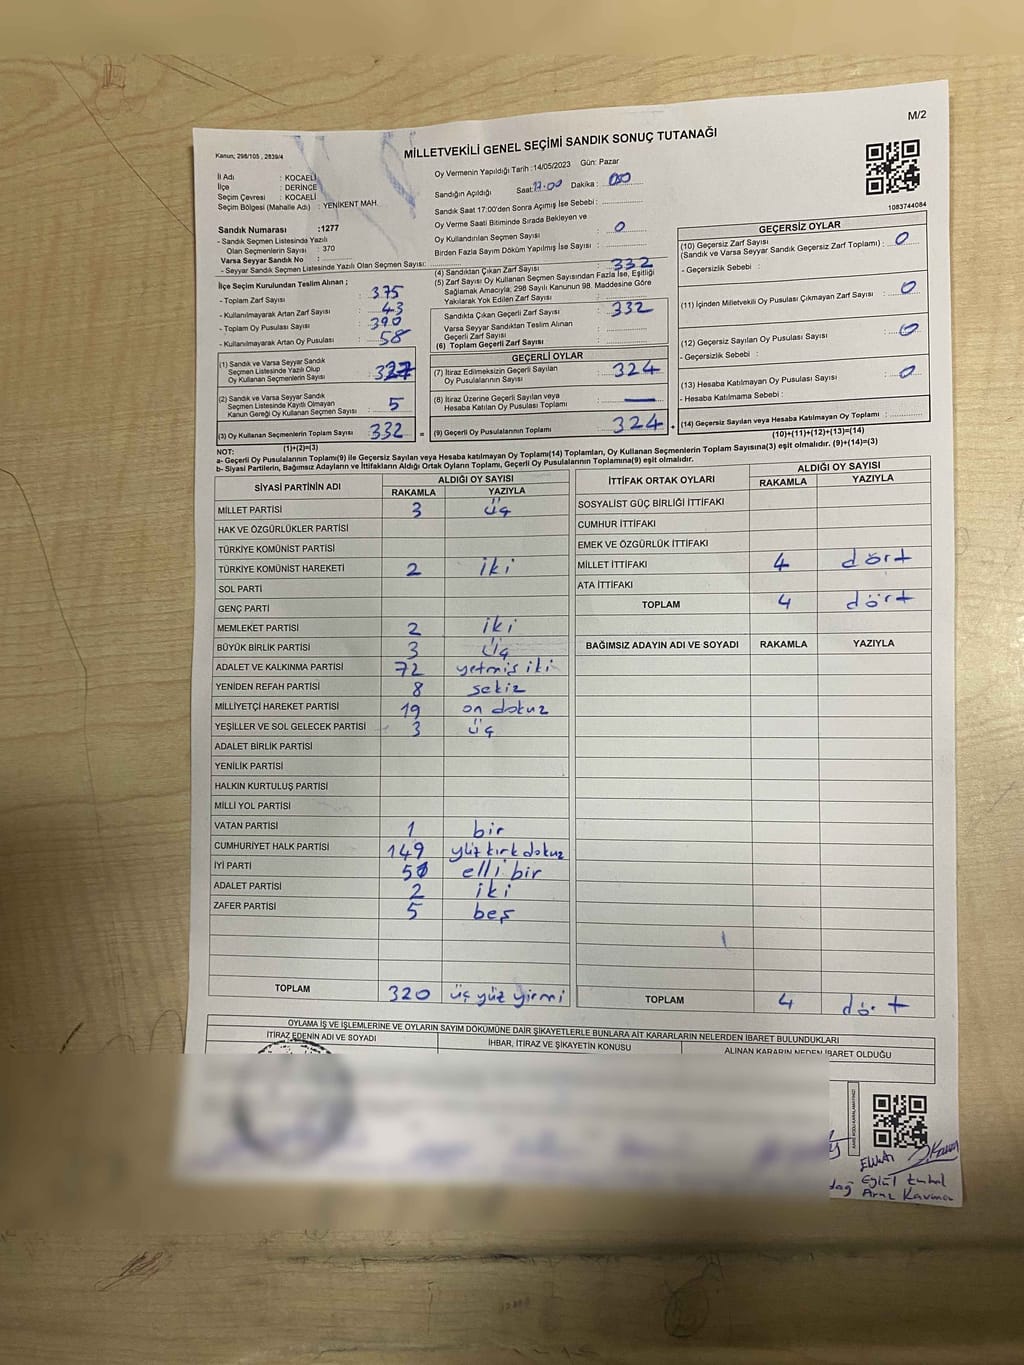 M/2
Kanun; 298/105 , 2839/4
MİLLETVEKİLİ GENEL SEÇİMİ SANDIK SONUÇ TUTANAĞI
İl Adı : KOCAELİ
İlçe : DERİNCE
Seçim Çevresi : KOCAELİ
Seçim Bölgesi (Mahalle Adı) : YENİKENT MAH.
Sandık Numarası :1277
- Sandık Seçmen Listesinde Yazılı
Olan Seçmenlerin Sayısı : 370
Varsa Seyyar Sandık No :
- Seyyar Sandık Seçmen Listesinde Yazılı Olan Seçmen Sayısı:
İlçe Seçim Kurulundan Teslim Alınan ;
- Toplam Zarf Sayısı : 375
- Kullanılmayarak Artan Zarf Sayısı : 43
- Toplam Oy Pusulası Sayısı : 390
- Kullanılmayarak Artan Oy Pusulası : 58
(1) Sandık ve Varsa Seyyar Sandık
Seçmen Listesinde Yazılı Olup
Oy Kullanan Seçmenlerin Sayısı : 327
(2) Sandık ve Varsa Seyyar Sandık
Seçmen Listesinde Kayıtlı Olmayan
Kanun Gereği Oy Kullanan Seçmen Sayısı : 5
(3) Oy Kullanan Seçmenlerin Toplam Sayısı 332
(1)+(2)=(3)
Oy Vermenin Yapıldığı Tarih :14/05/2023 Gün: Pazar
Sandığın Açıldığı Saat:17.00 Dakika :
Sandık Saat 17:00'den Sonra Açılmış İse Sebebi :
Oy Verme Saati Bitiminde Sırada Bekleyen ve
Oy Kullandırılan Seçmen Sayısı : 0
Birden Fazla Sayım Döküm Yapılmış İse Sayısı :
(4) Sandıktan Çıkan Zarf Sayısı : 332
(5) Zarf Sayısı Oy Kullanan Seçmen Sayısından Fazla İse, Eşitliği
Sağlamak Amacıyla, 298 Sayılı Kanunun 98. Maddesine Göre
Yakılarak Yok Edilen Zarf Sayısı :
Sandıkta Çıkan Geçerli Zarf Sayısı : 332
Varsa Seyyar Sandıktan Teslim Alınan
Geçerli Zarf Sayısı :
(6) Toplam Geçerli Zarf Sayısı :
GEÇERLİ OYLAR
(7) İtiraz Edilmeksizin Geçerli Sayılan
Oy Pusulalarının Sayısı : 324
(8) İtiraz Üzerine Geçerli Sayılan veya
Hesaba Katılan Oy Pusulası Toplamı : —
(9) Geçerli Oy Pusulalarının Toplamı : 324
1083744084
GEÇERSİZ OYLAR
(10) Geçersiz Zarf Sayısı
(Sandık ve Varsa Seyyar Sandık Geçersiz Zarf Toplamı) : 0
- Geçersizlik Sebebi :
(11) İçinden Milletvekili Oy Pusulası Çıkmayan Zarf Sayısı : 0
(12) Geçersiz Sayılan Oy Pusulası Sayısı : 0
- Geçersizlik Sebebi :
(13) Hesaba Katılmayan Oy Pusulası Sayısı : 0
- Hesaba Katılmama Sebebi :
(14) Geçersiz Sayılan veya Hesaba Katılmayan Oy Toplamı :
(10)+(11)+(12)+(13)=(14)
NOT:
a- Geçerli Oy Pusulalarının Toplamı(9) ile Geçersiz Sayılan veya Hesaba katılmayan Oy Toplamı(14) Toplamları, Oy Kullanan Seçmenlerin Toplam Sayısına(3) eşit olmalıdır. (9)+(14)=(3)
b- Siyasi Partilerin, Bağımsız Adayların ve İttifakların Aldığı Ortak Oyların Toplamı, Geçerli Oy Pusulalarının Toplamına(9) eşit olmalıdır.
SİYASİ PARTİNİN ADI ALDIĞI OY SAYISI
RAKAMLA YAZIYLA
MİLLET PARTİSİ 3 üç
HAK VE ÖZGÜRLÜKLER PARTİSİ
TÜRKİYE KOMÜNİST PARTİSİ
TÜRKİYE KOMÜNİST HAREKETİ 2 iki
SOL PARTİ
GENÇ PARTİ
MEMLEKET PARTİSİ 2 iki
BÜYÜK BİRLİK PARTİSİ 3 üç
ADALET VE KALKINMA PARTİSİ 72 yetmiş iki
YENİDEN REFAH PARTİSİ 8 sekiz
MİLLİYETÇİ HAREKET PARTİSİ 19 on dokuz
YEŞİLLER VE SOL GELECEK PARTİSİ 3 üç
ADALET BİRLİK PARTİSİ
YENİLİK PARTİSİ
HALKIN KURTULUŞ PARTİSİ
MİLLİ YOL PARTİSİ
VATAN PARTİSİ 1 bir
CUMHURİYET HALK PARTİSİ 149 yüz kırk dokuz
İYİ PARTİ 51 elli bir
ADALET PARTİSİ 2 iki
ZAFER PARTİSİ 5 beş
TOPLAM 320 üç yüz yirmi
İTTİFAK ORTAK OYLARI ALDIĞI OY SAYISI
RAKAMLA YAZIYLA
SOSYALİST GÜÇ BİRLİĞİ İTTİFAKI
CUMHUR İTTİFAKI
EMEK VE ÖZGÜRLÜK İTTİFAKI
MİLLET İTTİFAKI 4 dört
ATA İTTİFAKI
TOPLAM 4 dört
BAĞIMSIZ ADAYIN ADI VE SOYADI RAKAMLA YAZIYLA
TOPLAM 4 dört
OYLAMA İŞ VE İŞLEMLERİNE VE OYLARIN SAYIM DÖKÜMÜNE DAİR ŞİKAYETLERLE BUNLARA AİT KARARLARIN NELERDEN İBARET BULUNDUKLARI
İTİRAZ EDENİN ADI VE SOYADI İHBAR, İTİRAZ VE ŞİKAYETİN KONUSU ALINAN KARARIN NEDEN İBARET OLDUĞU